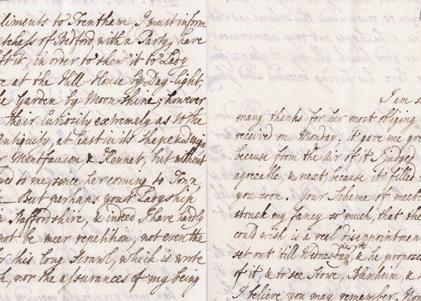 liments to Trentham I must inform
utchess of Bedford with a Party, have
ft it, in order to shew it to Lady
re at the Hill House by Day-light
e Garden by Moon Shine; however
their Curiosity extremely as to the
antiquity, at least in its shape
or Montfaucon & Kennet, but without
to me, since her coming to Town,
But perhaps your Ladyship
n Staffordshire, & indeed I have hardly
not be meer repetition, not even the
or this long Scrawl, which is wrote
d, nor the assurances of my being
I am
many thanks for her most oblging
received on Monday. it gave me
because from the Air of it I judged
agreable, & next because it
you soon. Your Scheme of
struck my fancy so much, that the
could wish is a reel disappointment
set out till Wednesday, & he proposes
of it, & to see Blenheim &
I believe you may remember,